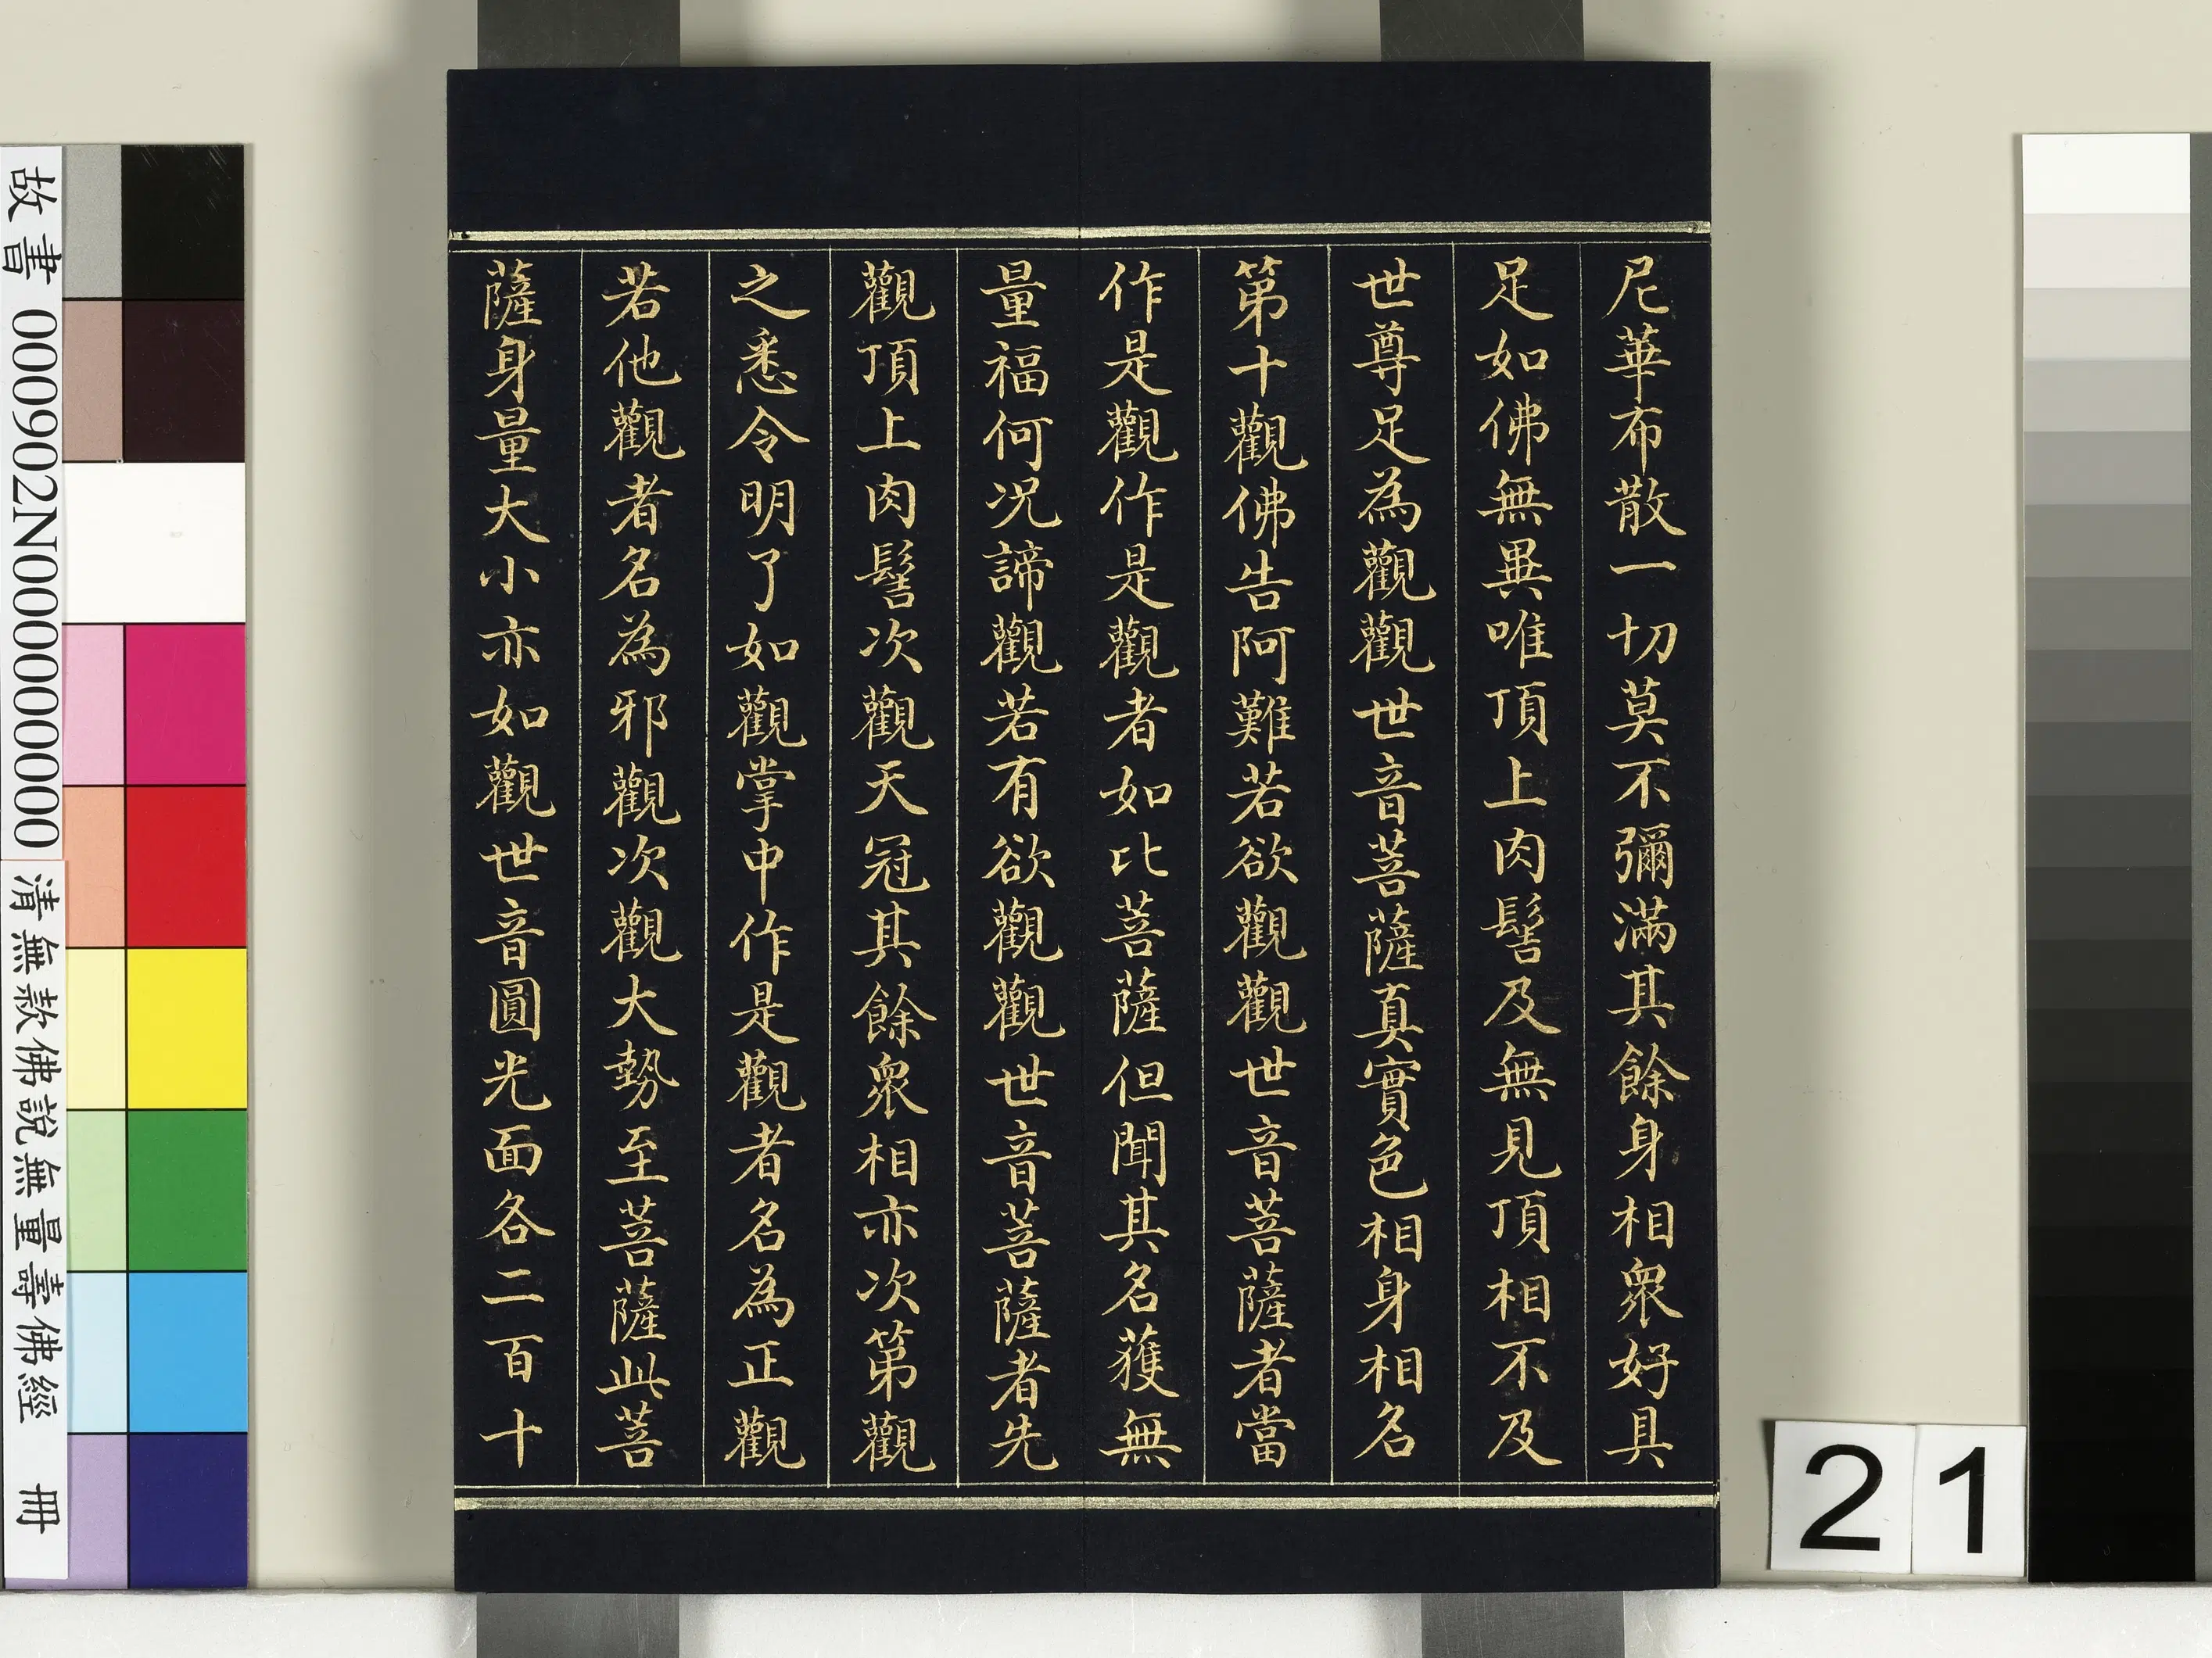 尼華布散一切莫不彌滿其餘身相衆好具
足如佛無異唯頂上肉髻及無見頂相不及
世尊足為觀觀世音菩薩真實色相身相名
第十觀佛告阿難若欲觀觀世音菩薩者當
作是觀作是觀者如比菩薩但聞其名獲無
量福何況諦觀若有欲觀觀世音菩薩者先
觀頂上肉髻次觀天冠其餘衆相亦次第觀
之悉令明了如觀掌中作是觀者名為正觀
若他觀者名為邪觀次觀大勢至菩薩此菩
薩身量大小亦如觀世音圓光面各二百十
故書 000902N000000000
清無款佛說無量壽佛經 冊
21